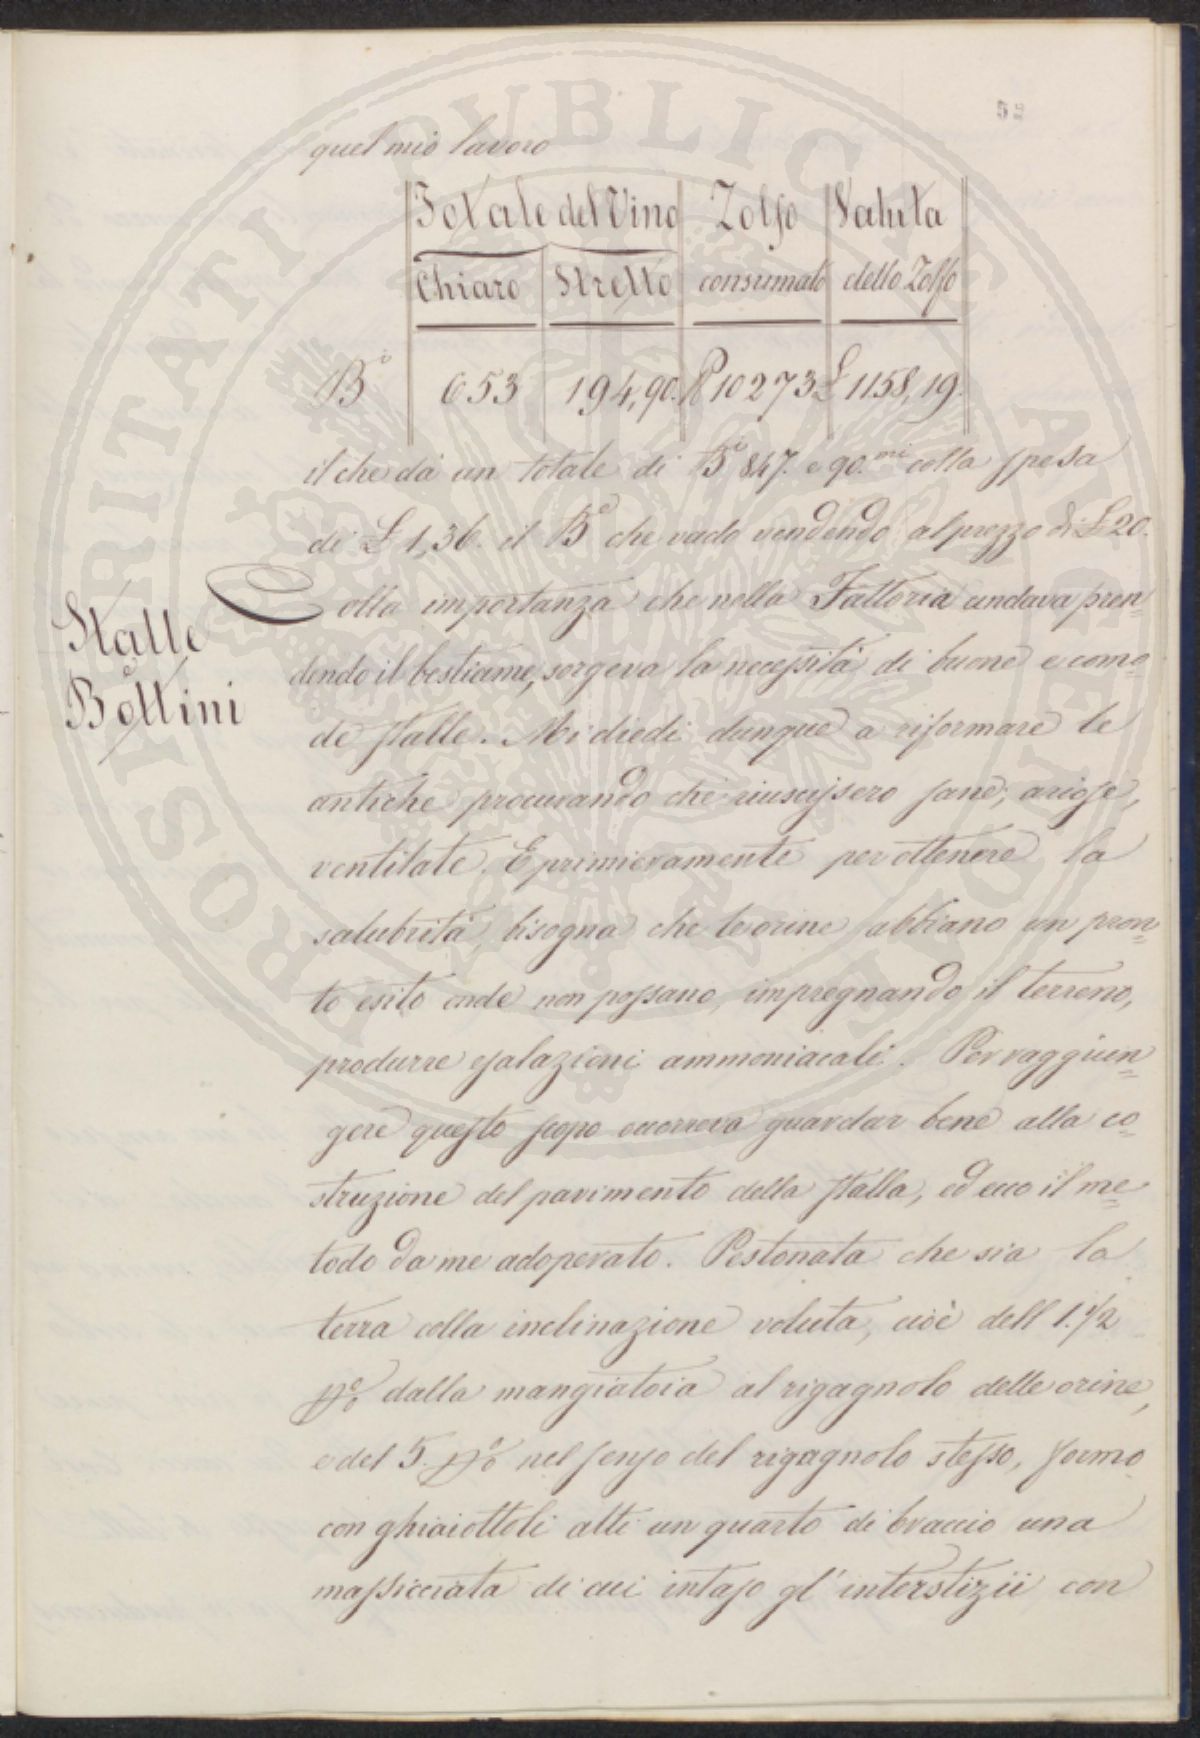 52
quel mio lavoro
Totale del Vino Zolfo Valuta
Chiaro Stretto consumato dello Zolfo
B.i 653 194,90. ℔ 10273 £ 1158,19.
il che dà un totale di B.i 847. e 90.mi colla spesa
di £ 1,36. il B.e che vado vendendo al prezzo di £ 20.
Stalle
e
Bottini
Colla importanza che nella Fattoria andava pren=
dendo il bestiame, sorgeva la necessità di buone e como
de stalle. Mi diedi dunque a riformare le
antiche procurando che riuscissero sane, ariose,
ventilate. E primieramente per ottenere la
salubrità, bisogna che le orine abbiano un pron=
to esito onde non possano, impregnando il terreno,
produrre esalazioni ammoniacali. Per raggiun=
gere questo scopo occorreva guardar bene alla co=
struzione del pavimento della stalla, ed ecco il me=
todo da me adoperato. Pestonata che sia la
terra colla inclinazione voluta, cioè dell 1. 1/2
p% dalla mangiatoia al rigagnolo delle orine,
e del 5. p% nel senso del rigagnolo stesso, formo
con ghiaiottoli alti un quarto di braccio una
massicciata di cui intaso gl' interstizii con
PROSPERITATI PUBLICAE AUGENDAE